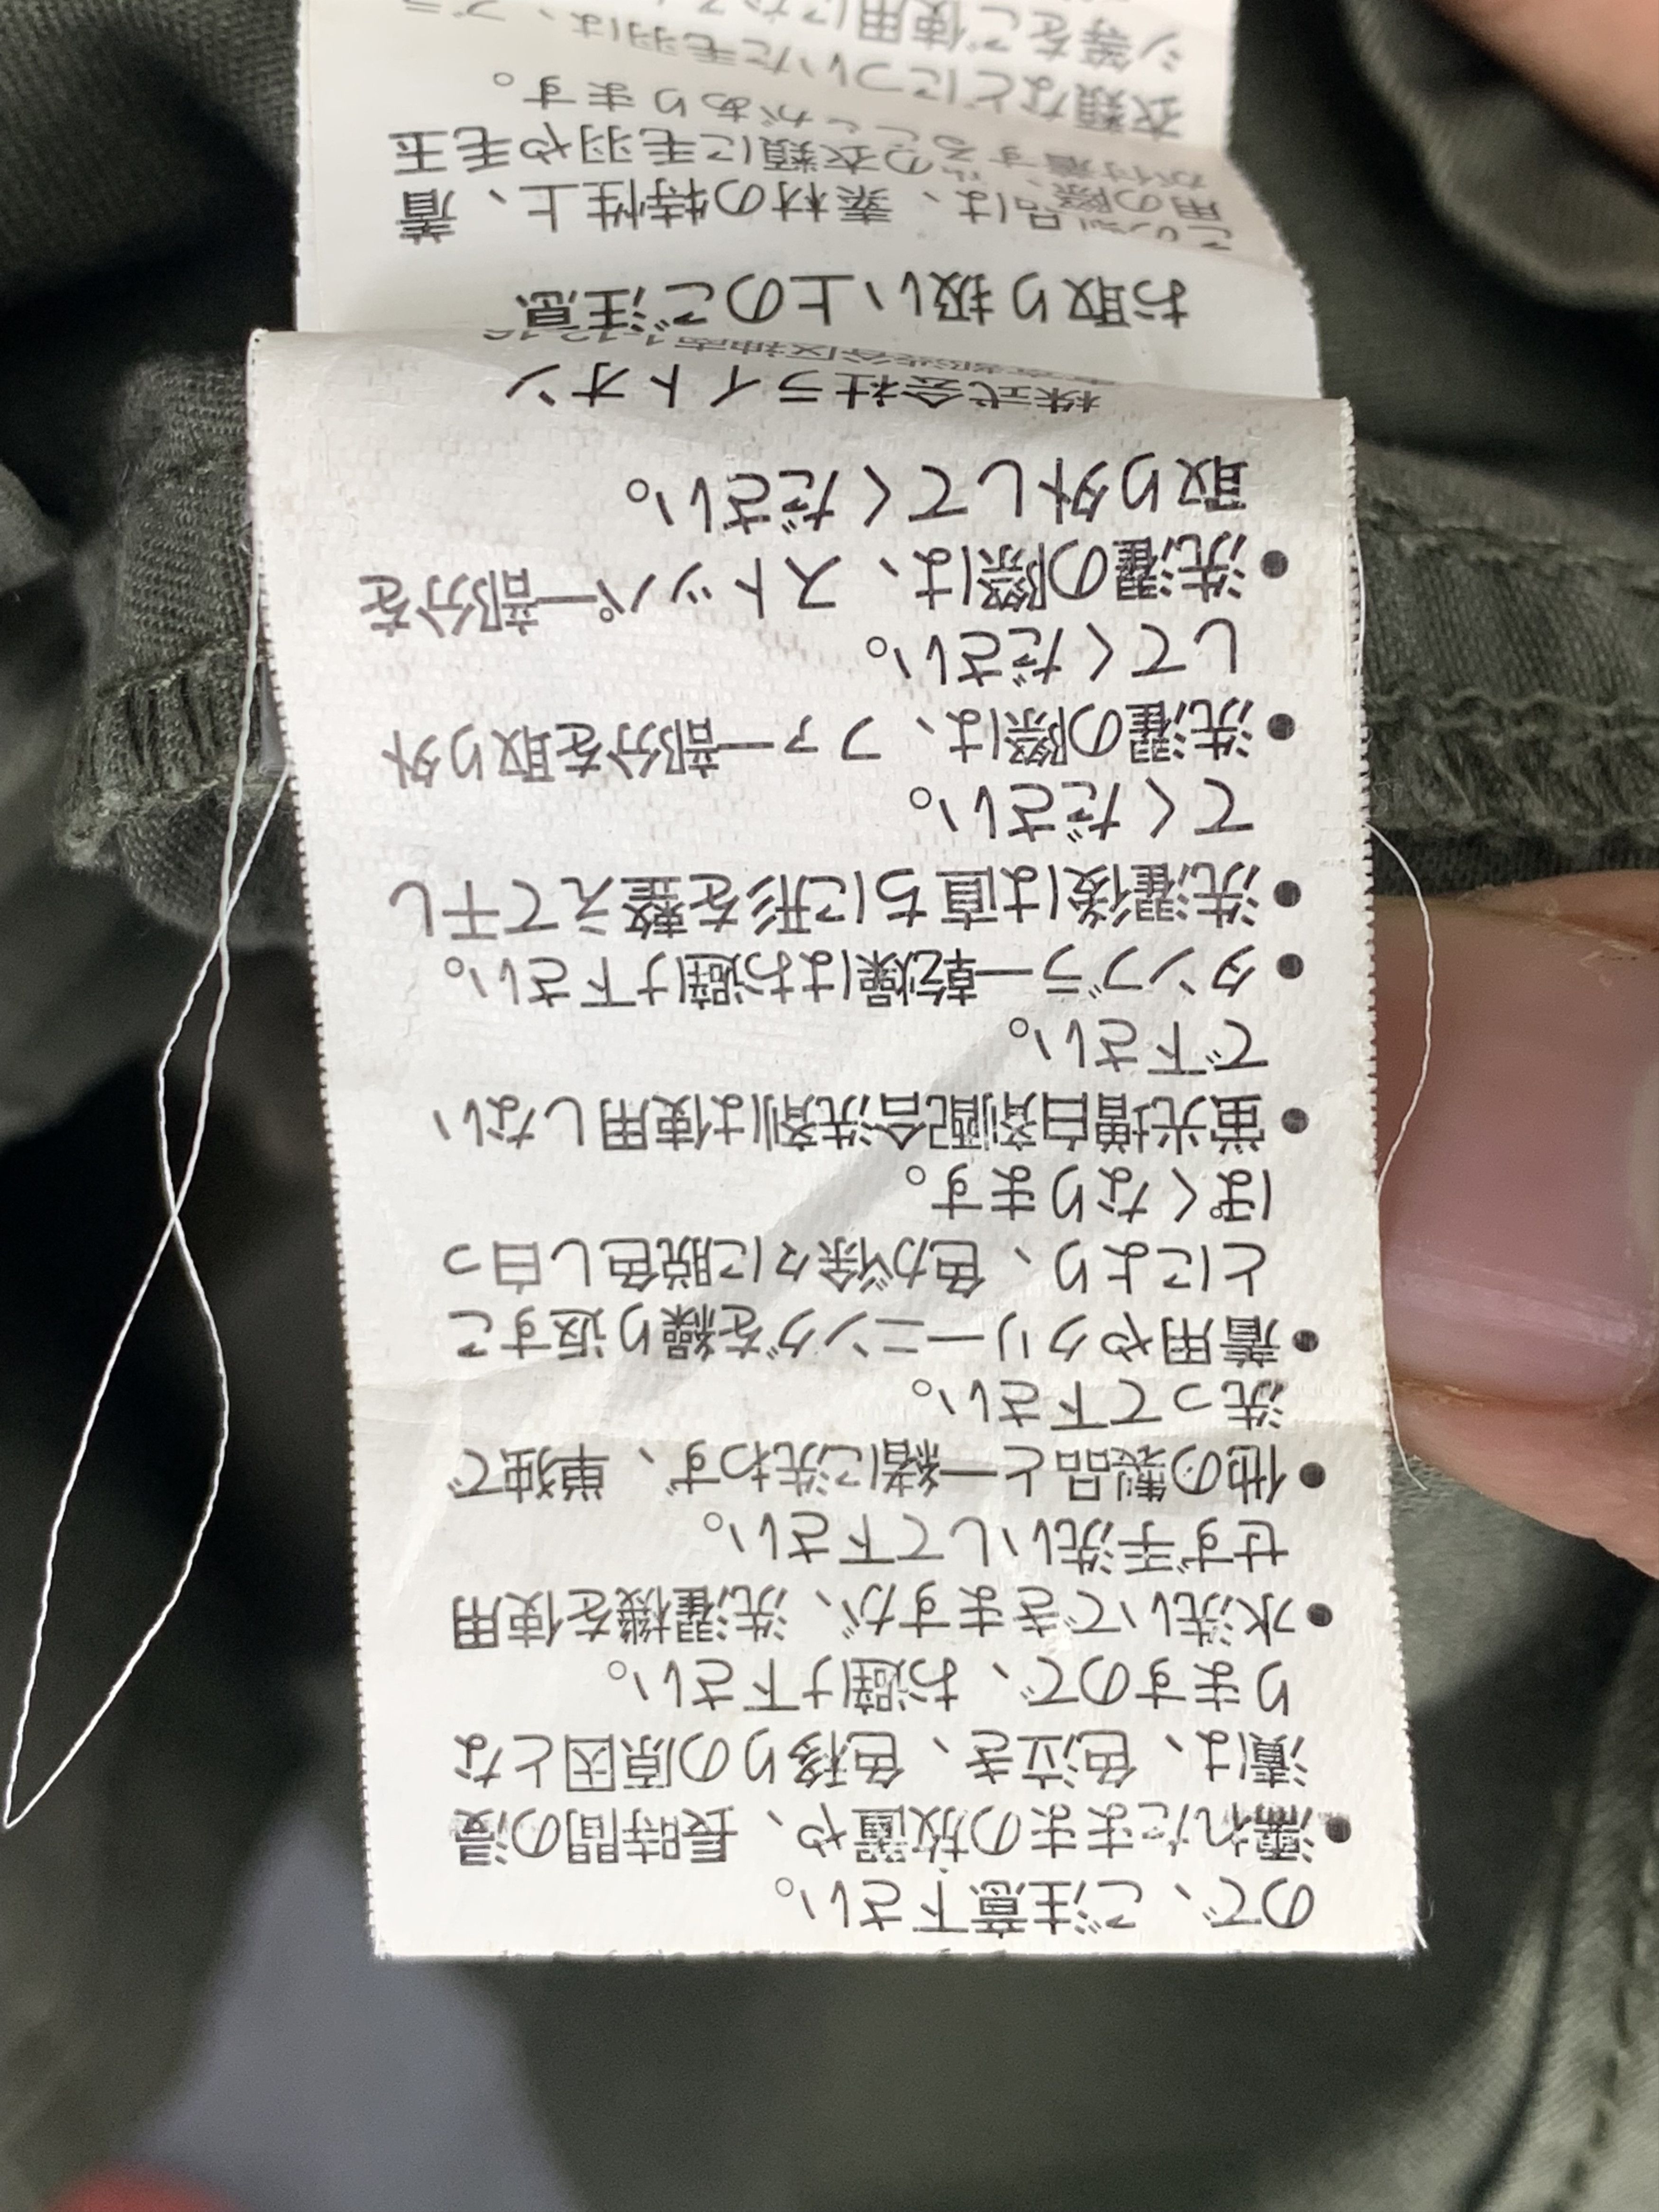 ので、ご注意下さい。
●濡れたままの放置や、長時間の浸
漬は、色泣き、色移りの原因とな
りますので、お避け下さい。
●水洗いできますが、洗濯機を使用
せず手洗いして下さい。
●他の製品と一緒に洗わず、単独で
洗って下さい。
●着用やクリーニングを繰り返すこ
とにより、色が徐々に脱色し白っ
ぽくなります。
●蛍光増白剤配合洗剤は使用しない
で下さい。
●タンブラー乾燥はお避け下さい。
●洗濯後は直ちに形を整えて干し
てください。
●洗濯の際は、ファー部分を取り外
してください。
●洗濯の際は、ストッパー部分を
取り外してください。
株式会社ライトオン
渋谷区神南
お取り扱い上のご注意
この製品は、素材の特性上、着
用の際、他の衣類に毛羽や毛玉
が付着することがあります。
衣類などについた毛羽は、ブラ
シ等をご使用にな